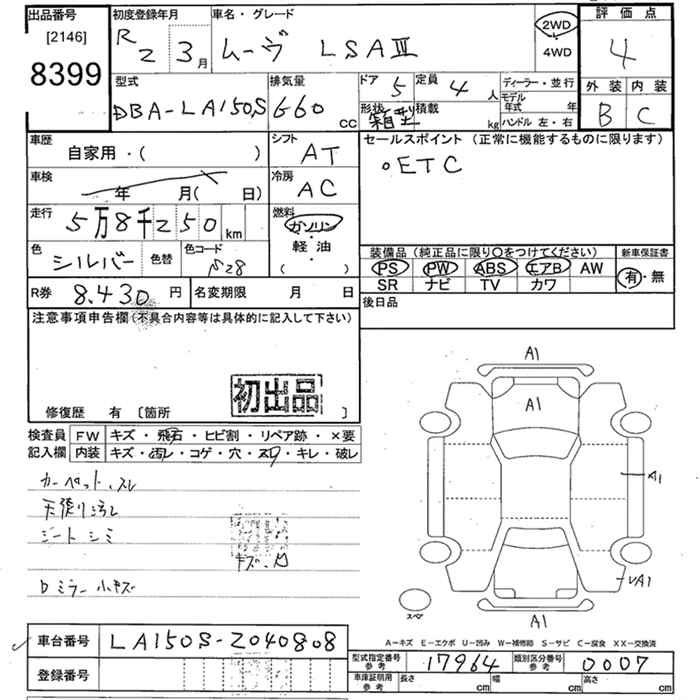 出品番号 初度登録年月 車名・グレード 評価点
[2146] R 2 3月 ムーヴ LSAⅢ 2WD 4
8399 4WD
型式 排気量 ドア 定員 ディーラー・並行 外装 内装
DBA-LA150S 660 CC 5 4人 モデル年式 年 B C
形状 箱型 積載 kg ハンドル 左・右
車歴 シフト セールスポイント (正常に機能するものに限ります)
自家用・( ) AT 。ETC
車検 冷房
年 月( 日) AC
走行 燃料
5万8千250km ガソリン・
軽油 装備品 (純正品に限り○をつけてください) 新車保証書
色 シルバー 色替 色コード S28 ( ) PS PW ABS エアB AW 有・無
SR ナビ TV カワ
R券 8.430円 名変期限 月 日 後日品
注意事項申告欄(不具合内容等は具体的に記入して下さい)
初出品
修復歴 有 [箇所 ]
検査員 FW キズ・飛石・ヒビ割・リペア跡・×要
記入欄 内装 キズ・汚レ・コゲ・穴・スレ・キレ・破レ
カーペット、スレ
天張り汚レ
シート シミ
キズ、凹
Dミラー 小キズ
A1
A1
A1
VA1
スペア
A1
A-キズ E-エクボ U-凹み W-補修跡 S-サビ C-腐食 XX-交換済
車台番号 LA150S-2040808
型式指定番号 参考 17964 類別区分番号 参考 0007
登録番号
車庫証明用 参考 長さ cm 幅 cm 高さ cm